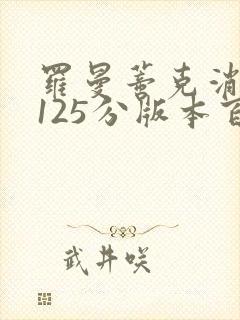 羅曼蒂克消
125分版本百
武井咲